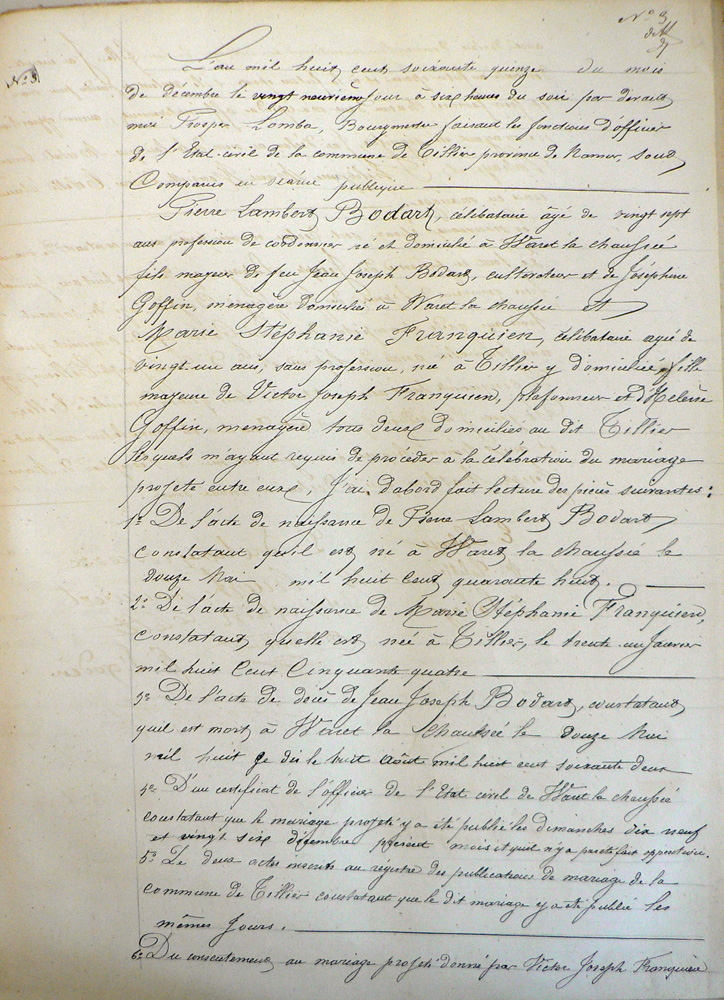 N° 3
N° 3.
L'an mil huit cent soixante quinze du mois
de décembre le vingt neuvième jour à six heures du soir par devant
moi Prosper Lomba, Bourgmestre faisant les fonctions d'officier
de l'Etat-civil de la commune de Tillier province de Namur, sont
Comparus en séance publique
Pierre Lambert Bodart, célibataire âgé de vingt sept
ans profession de cordonnier né et domicilié à Waret la chaussée
fils majeur de feu Jean Joseph Bodart, cultivateur et de Joséphine
Goffin, ménagère domiciliée à Waret la chaussée et
Marie Stéphanie Franquien, célibataire agée de
vingt-un ans, sans profession, née à Tillier y domiciliée, fille
majeure de Victor Joseph Franquien, plafonneur et d'Helène
Goffin, menagère tous deux domiciliés au dit Tillier
lesquels m'ayant requis de procéder à la célébration du mariage
projeté entre eux, j'ai d'abord fait lecture des pièces suivantes:
1° De l'acte de naissance de Pierre Lambert Bodart
constatant qu'il est né à Waret la chaussée le
douze Mai mil huit cent quarante huit.
2° De l'acte de naissance de Marie Stéphanie Franquien,
constatant quelle est née à Tillier, le trente-un Janvier
mil huit Cent Cinquante quatre
3° De l'acte de décès de Jean Joseph Bodart, constatant
quil est mort à Waret la Chaussée le douze Mai
mil huit ge dis le huit Août mil huit cent soixante deux
4° D'un certificat de l'officier de l'Etat civil de Waret la chaussée
constatant que le mariage projeté y a été publié les dimanches dix neuf
et vingt six décembre présent mois et quil n'y a pas été fait opposition.
5° Le deux actes inscrits au régistre des publications de mariage de la
commune de Tillier constatant que le dit mariage y a été publié les
mêmes jours.
6° Du consentement au mariage projeté donné par Victor Joseph Franquien